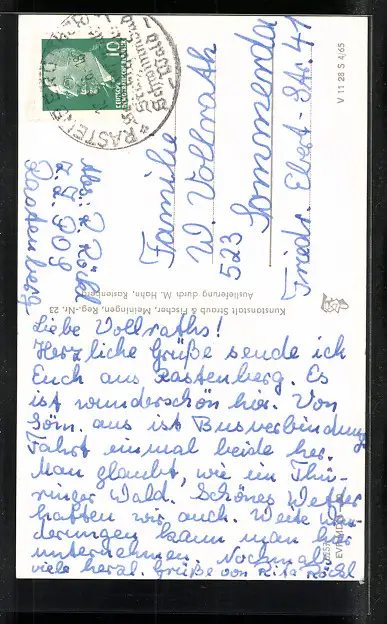 RASTENBERG
Schwimmbad-
Schau-Wald-
10
DEUTSCHE DEMOKRATISCHE REPUBLIK
Abs. R. Röckl
Z. Z. 909
Rastenberg
Familie
W. Vollrath
523 Sömmerda
Friedr. Ebert-Str. 41
V 11 28 S 4/65
Kunstanstalt Straub & Fischer, Meiningen, Reg.-Nr. 23
Auslieferung durch M. Hohn, Rastenberg
Liebe Vollraths!
Herzliche Grüße sende ich
Euch aus Rastenberg. Es
ist wunderschön hier. Von
Söm. aus ist Busverbindung
Fahrt einmal beide her.
Man glaubt, wie im Thü-
ringer Wald. Schönes Wetter
hatten wir auch. Weite Wan-
derungen kann man hier
unternehmen. Nochmals
viele herzl. Grüße von Rita Röckl